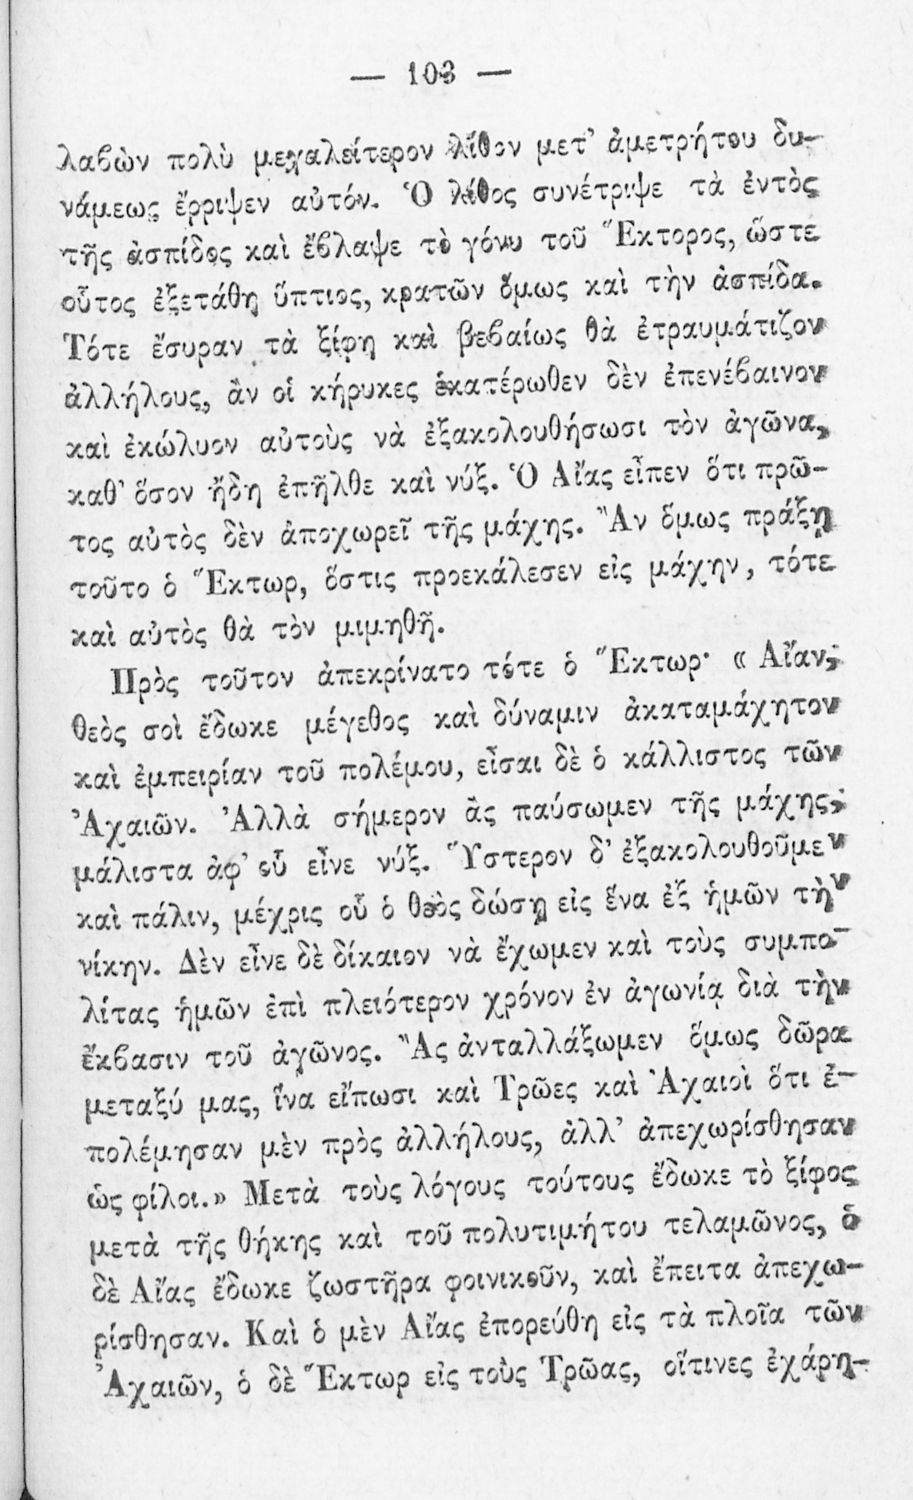 — 103 —
λαβὼν πολὺ μεγαλείτερον λίθον μετ’ ἀμετρήτου δυ-
νάμεως ἔρριψεν αὐτόν. Ὁ λίθος συνέτριψε τὰ ἐντὸς
τῆς ἀσπίδος καὶ ἔβλαψε τὸ γόνυ τοῦ Ἕκτορος, ὥστε
οὗτος ἐξετάθη ὕπτιος, κρατῶν ὅμως καὶ τὴν ἀσπίδα.
Τότε ἔσυραν τὰ ξίφη καὶ βεβαίως θὰ ἐτραυμάτιζον
ἀλλήλους, ἂν οἱ κήρυκες ἑκατέρωθεν δὲν ἐπενέβαινον
καὶ ἐκώλυον αὐτοὺς νὰ ἐξακολουθήσωσι τὸν ἀγῶνα,
καθ’ ὅσον ἤδη ἐπῆλθε καὶ νύξ. Ὁ Αἴας εἶπεν ὅτι πρῶ-
τος αὐτὸς δὲν ἀποχωρεῖ τῆς μάχης. Ἂν ὅμως πράξῃ
τοῦτο ὁ Ἕκτωρ, ὅστις προεκάλεσεν εἰς μάχην, τότε
καὶ αὐτὸς θὰ τὸν μιμηθῇ.
Πρὸς τοῦτον ἀπεκρίνατο τότε ὁ Ἕκτωρ· « Αἶαν,
θεὸς σοὶ ἔδωκε μέγεθος καὶ δύναμιν ἀκαταμάχητον
καὶ ἐμπειρίαν τοῦ πολέμου, εἶσαι δὲ ὁ κάλλιστος τῶν
Ἀχαιῶν. Ἀλλὰ σήμερον ἂς παύσωμεν τῆς μάχης,
μάλιστα ἀφ’ οὗ εἶνε νύξ. Ὕστερον δ’ ἐξακολουθοῦμεν
καὶ πάλιν, μέχρις οὗ ὁ θεὸς δώσῃ εἰς ἕνα ἐξ ἡμῶν τὴν
νίκην. Δὲν εἶνε δὲ δίκαιον νὰ ἔχωμεν καὶ τοὺς συμπο-
λίτας ἡμῶν ἐπὶ πλειότερον χρόνον ἐν ἀγωνίᾳ διὰ τὴν
ἔκβασιν τοῦ ἀγῶνος. Ἂς ἀνταλλάξωμεν ὅμως δῶρα
μεταξύ μας, ἵνα εἴπωσι καὶ Τρῶες καὶ Ἀχαιοὶ ὅτι ἐ-
πολέμησαν μὲν πρὸς ἀλλήλους, ἀλλ’ ἀπεχωρίσθησαν
ὡς φίλοι.» Μετὰ τοὺς λόγους τούτους ἔδωκε τὸ ξίφος
μετὰ τῆς θήκης καὶ τοῦ πολυτιμήτου τελαμῶνος, ὁ
δὲ Αἴας ἔδωκε ζωστῆρα φοινικοῦν, καὶ ἔπειτα ἀπεχω-
ρίσθησαν. Καὶ ὁ μὲν Αἴας ἐπορεύθη εἰς τὰ πλοῖα τῶν
Ἀχαιῶν, ὁ δὲ Ἕκτωρ εἰς τοὺς Τρῶας, οἵτινες ἐχάρη-